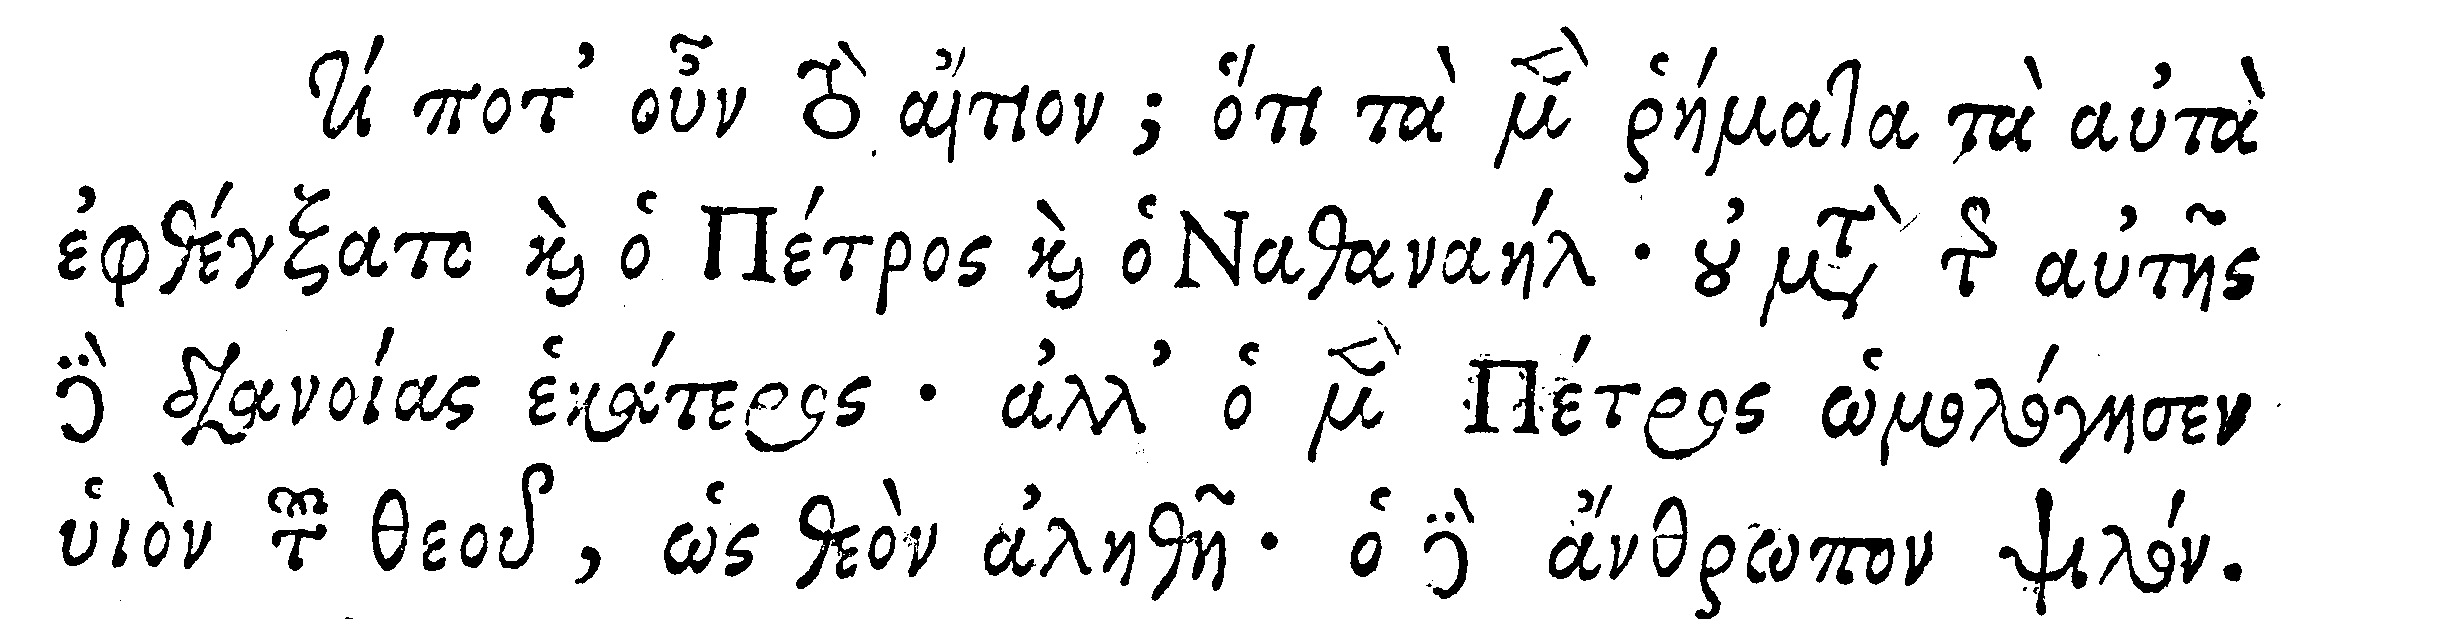 τί ποτ' οὖν τὸ αἴτιον; ὅτι τὰ μὲν ῥήματα τὰ αὐτὰ
ἐφθέγξατο καὶ ὁ Πέτρος καὶ ὁ Ναθαναήλ · οὐ μετὰ τῆς αὐτῆς
δὲ διανοίας ἑκάτερος · ἀλλ' ὁ μὲν Πέτρος ὡμολόγησεν
υἱὸν τοῦ θεοῦ, ὡς θεὸν ἀληθῆ · ὁ δὲ ἄνθρωπον ψιλόν.